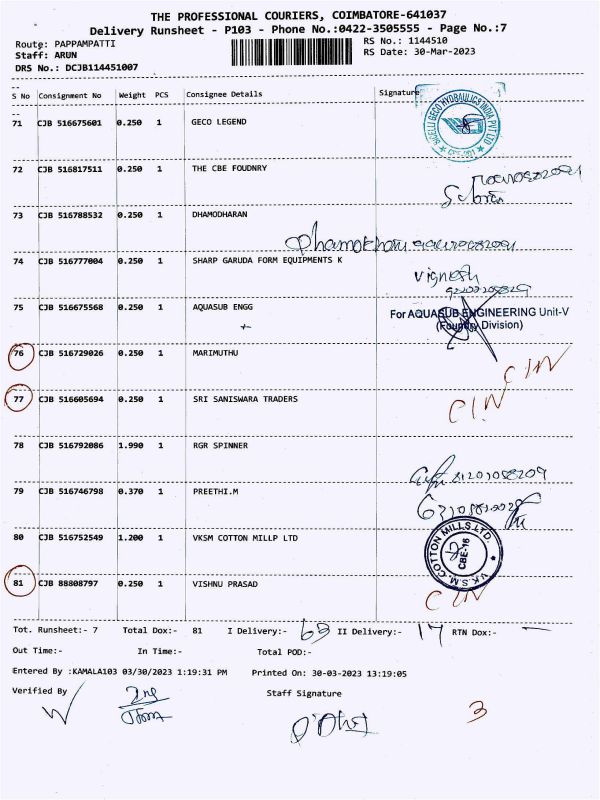 THE PROFESSIONAL COURIERS, COIMBATORE-641037
Delivery Runsheet - P103 - Phone No.:0422-3505555 - Page No.:7
Route: PAPPAMPATTI
RS No.: 1144510
Staff: ARUN
RS Date: 30-Mar-2023
DRS No.: DCJB114451007
S No Consignment No Weight PCS Consignee Details Signature
71 CJB 516675601 0.250 1 GECO LEGEND
72 CJB 516817511 0.250 1 THE CBE FOUDNRY
73 CJB 516788532 0.250 1 DHAMODHARAN
74 CJB 516777004 0.250 1 SHARP GARUDA FORM EQUIPMENTS K
Vignesh
75 CJB 516675568 0.250 1 AQUASUB ENGG
For AQUASUB ENGINEERING Unit-V
(Foundry Division)
76 CJB 516729026 0.250 1 MARIMUTHU
C/N
77 CJB 516605694 0.250 1 SRI SANISWARA TRADERS
C/N
78 CJB 516792086 1.990 1 RGR SPINNER
79 CJB 516746798 0.370 1 PREETHI.M
80 CJB 516752549 1.200 1 VKSM COTTON MILLP LTD
V.K.S.M. COTTON MILLS LTD.
CBE-16
81 CJB 88808797 0.250 1 VISHNU PRASAD
C/N
Tot. Runsheet:- 7 Total Dox:- 81 I Delivery:- II Delivery:- 17 RTN Dox:- —
Out Time:- In Time:- Total POD:-
Entered By :KAMALA103 03/30/2023 1:19:31 PM Printed On: 30-03-2023 13:19:05
Verified By Staff Signature
3